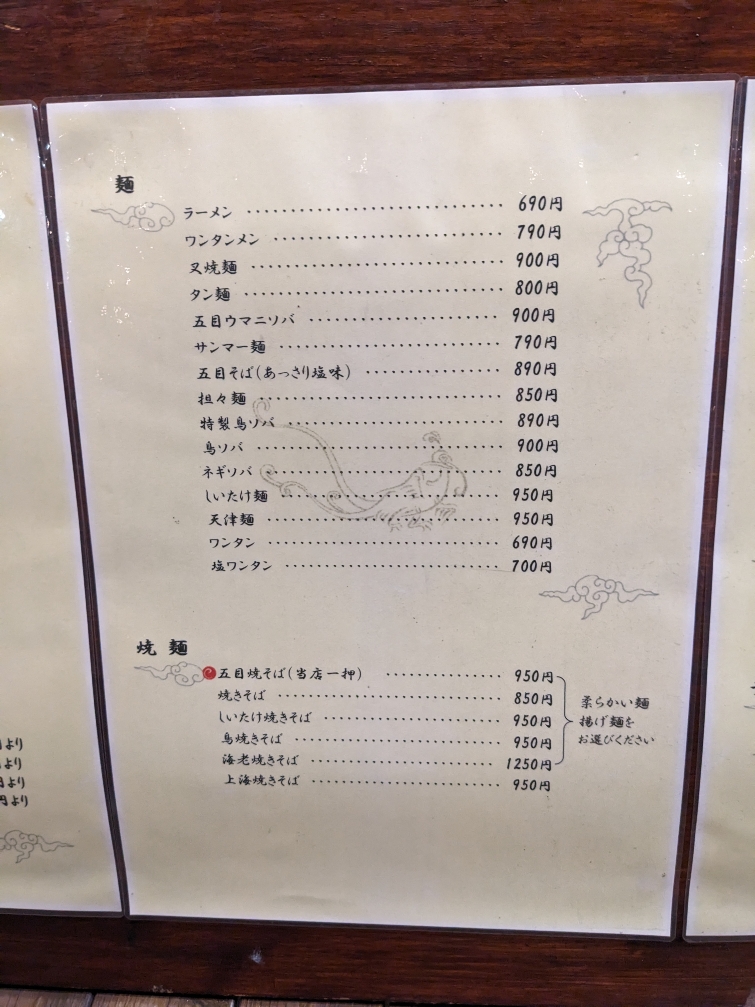 麺
ラーメン ・・・・・・・・・・・・・・・・・・・・・・・・・・・・・・ 690円
ワンタンメン ・・・・・・・・・・・・・・・・・・・・・・・・・・・ 790円
叉焼麺 ・・・・・・・・・・・・・・・・・・・・・・・・・・・・・ 900円
タン麺 ・・・・・・・・・・・・・・・・・・・・・・・・・・・・・・ 800円
五目ウマニソバ ・・・・・・・・・・・・・・・・・・・・・・ 900円
サンマー麺 ・・・・・・・・・・・・・・・・・・・・・・・・・・ 790円
五目そば(あっさり塩味) ・・・・・・・・・・・・・・・・ 890円
担々麺 ・・・・・・・・・・・・・・・・・・・・・・・・・・・・ 850円
特製鳥ソバ ・・・・・・・・・・・・・・・・・・・・・・・・・ 890円
鳥ソバ ・・・・・・・・・・・・・・・・・・・・・・・・・・・・ 900円
ネギソバ ・・・・・・・・・・・・・・・・・・・・・・・・・・・ 850円
しいたけ麺 ・・・・・・・・・・・・・・・・・・・・・・・・・ 950円
天津麺 ・・・・・・・・・・・・・・・・・・・・・・・・・・・ 950円
ワンタン ・・・・・・・・・・・・・・・・・・・・・・・・・・・ 690円
塩ワンタン ・・・・・・・・・・・・・・・・・・・・・・・・・ 700円
焼 麺
五目焼そば(当店一押) ・・・・・・・・・・・・・ 950円
焼きそば ・・・・・・・・・・・・・・・・・・・・・・・・・ 850円
しいたけ焼きそば ・・・・・・・・・・・・・・・・・・・・ 950円
鳥焼きそば ・・・・・・・・・・・・・・・・・・・・・・・・ 950円
海老焼きそば ・・・・・・・・・・・・・・・・・・・・・ 1250円
上海焼きそば ・・・・・・・・・・・・・・・・・・・・・ 950円
柔らかい麺
揚げ麺を
お選びください
円より
円より
円より
円より